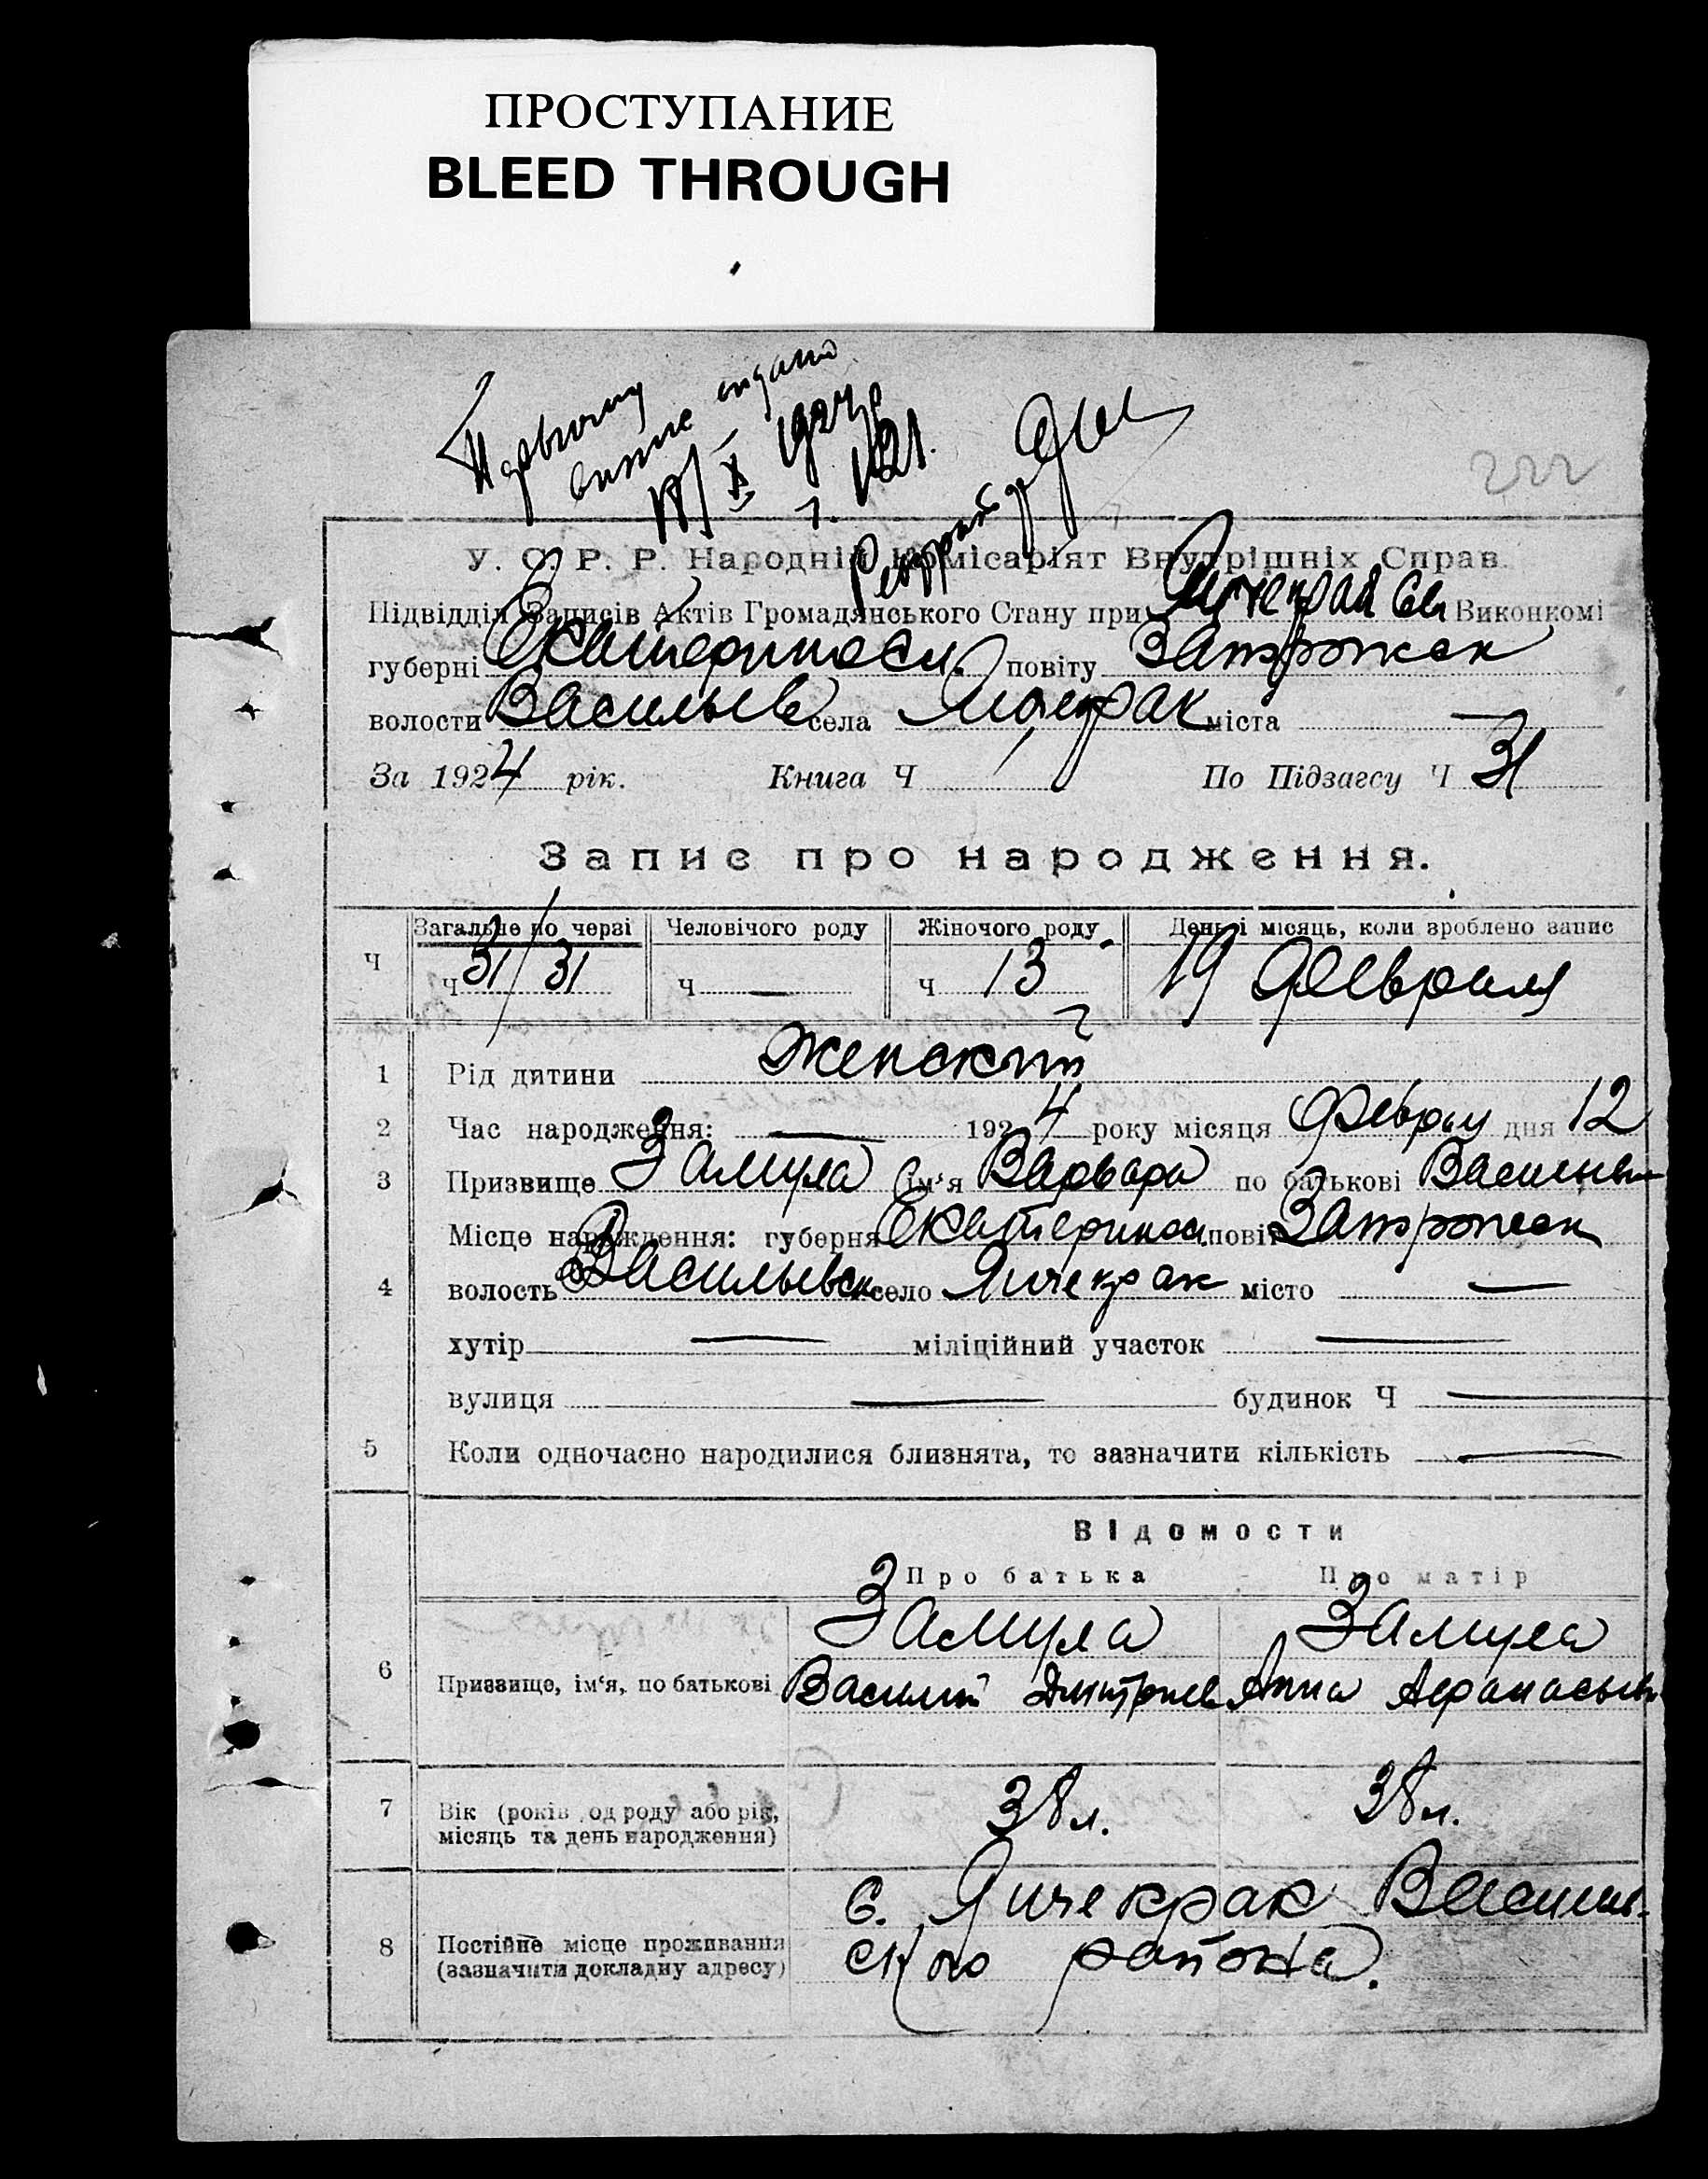 ПРОСТУПАНИЕ
BLEED THROUGH
выпис видано
1924 р
222
У. С. Р. Р. Народній Комісаріят Внутрішніх Справ.
Підвідділ Записів Актів Громадянського Стану при Янчекрак Виконкомі
губерні Екатериносл. повіту Запорожск
волости Васильев села Янчекрак міста —
За 1924 рік. Книга Ч По Підзагсу Ч 31
Запис про народження.
Загальне по черзі Человічого роду Жіночого роду День і місяць, коли зроблено запис
Ч ч 31/31 ч — ч 13 19 Февраля
1 Рід дитини Женский
2 Час народження: — 1924 року місяця Феврал дня 12
3 Призвище Замула Ім'я Варвара по батькові Васильев
Місце народження: губерня Екатеринос. повіт Запорожск
4 волость Васильевск село Янчекрак місто —
хутір — міліційний участок —
вулиця — будинок Ч —
5 Коли одночасно народилися близнята, то зазначити кількість —
Відомости
Про батька Про матір
Замула Замула
6 Призвище, ім'я, по батькові Василий Дмитриев Анна Афанасьев
7 Вік (років од роду або рік, місяць та день народження) 38 л. 38 л.
с. Янчекрак Василь-
8 Постійне місце проживання (зазначити докладну адресу) ского района.